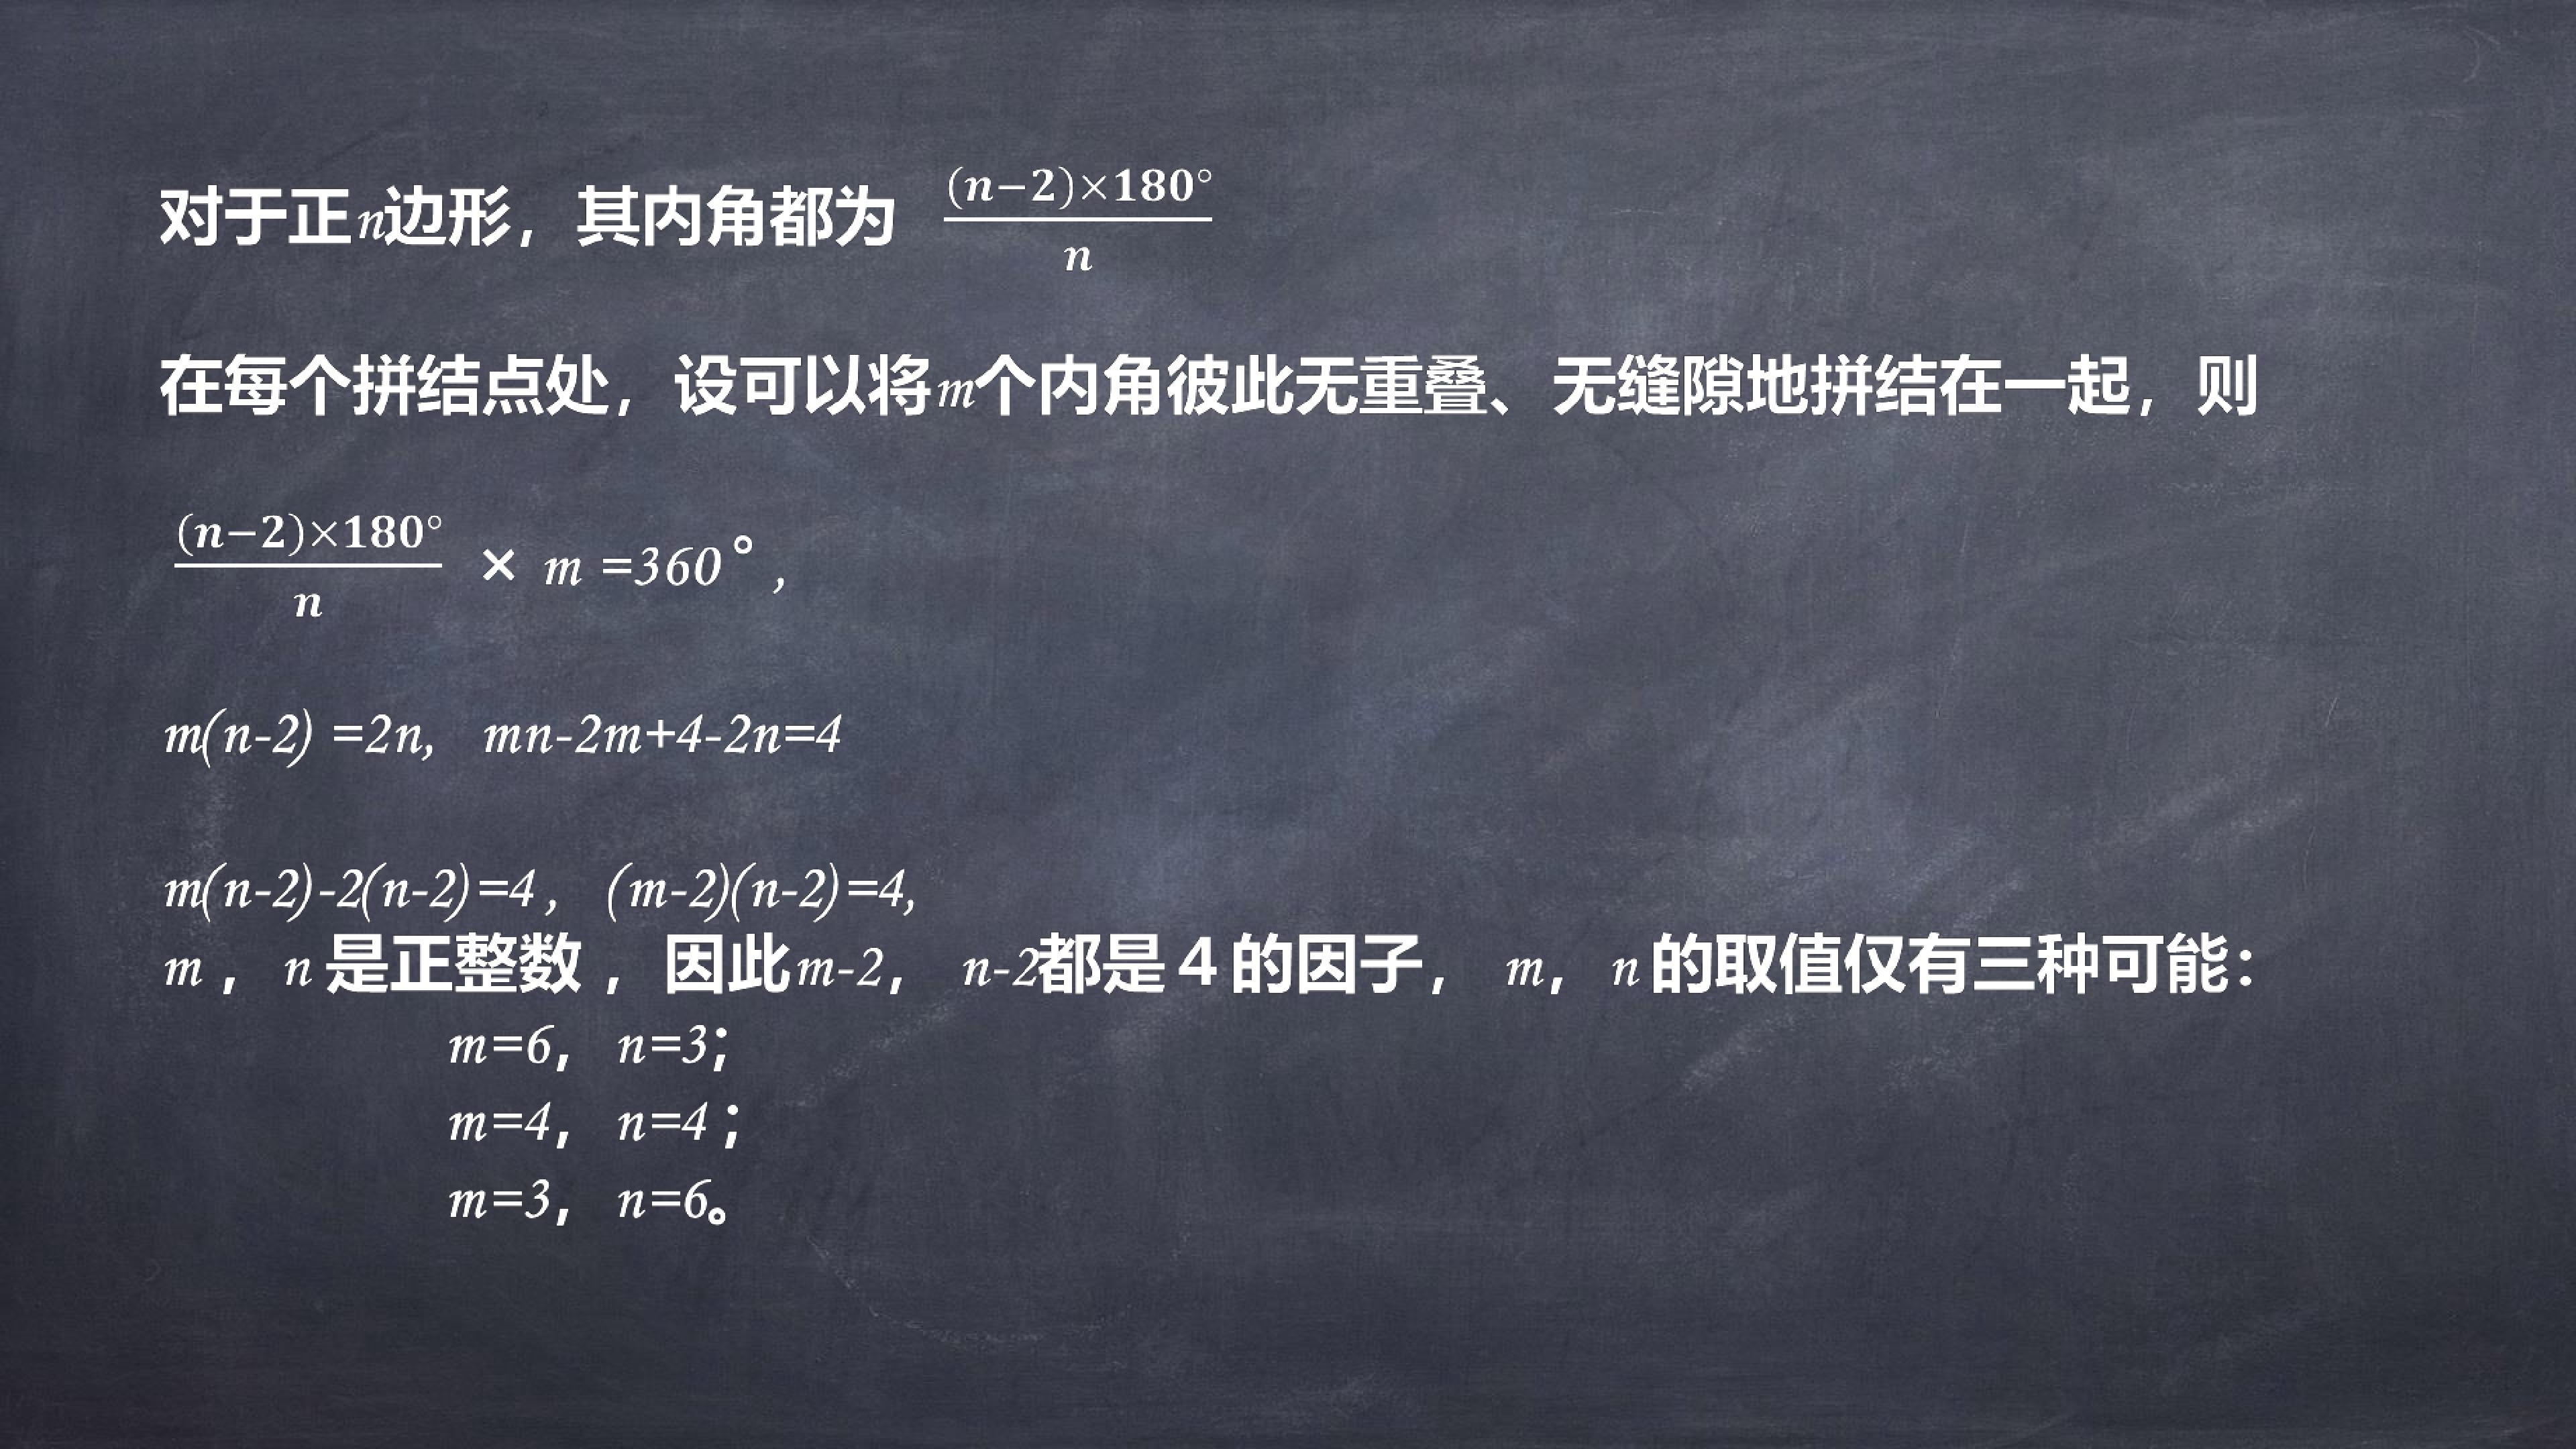 对于正n边形，其内角都为 (n−2)×180°/n
在每个拼结点处，设可以将m个内角彼此无重叠、无缝隙地拼结在一起，则
(n−2)×180°/n × m =360°,
m(n-2) =2n, mn-2m+4-2n=4
m(n-2)-2(n-2)=4 , (m-2)(n-2)=4,
m ， n 是正整数 ，因此m-2， n-2都是 4 的因子， m， n 的取值仅有三种可能：
m=6， n=3；
m=4， n=4 ；
m=3， n=6。